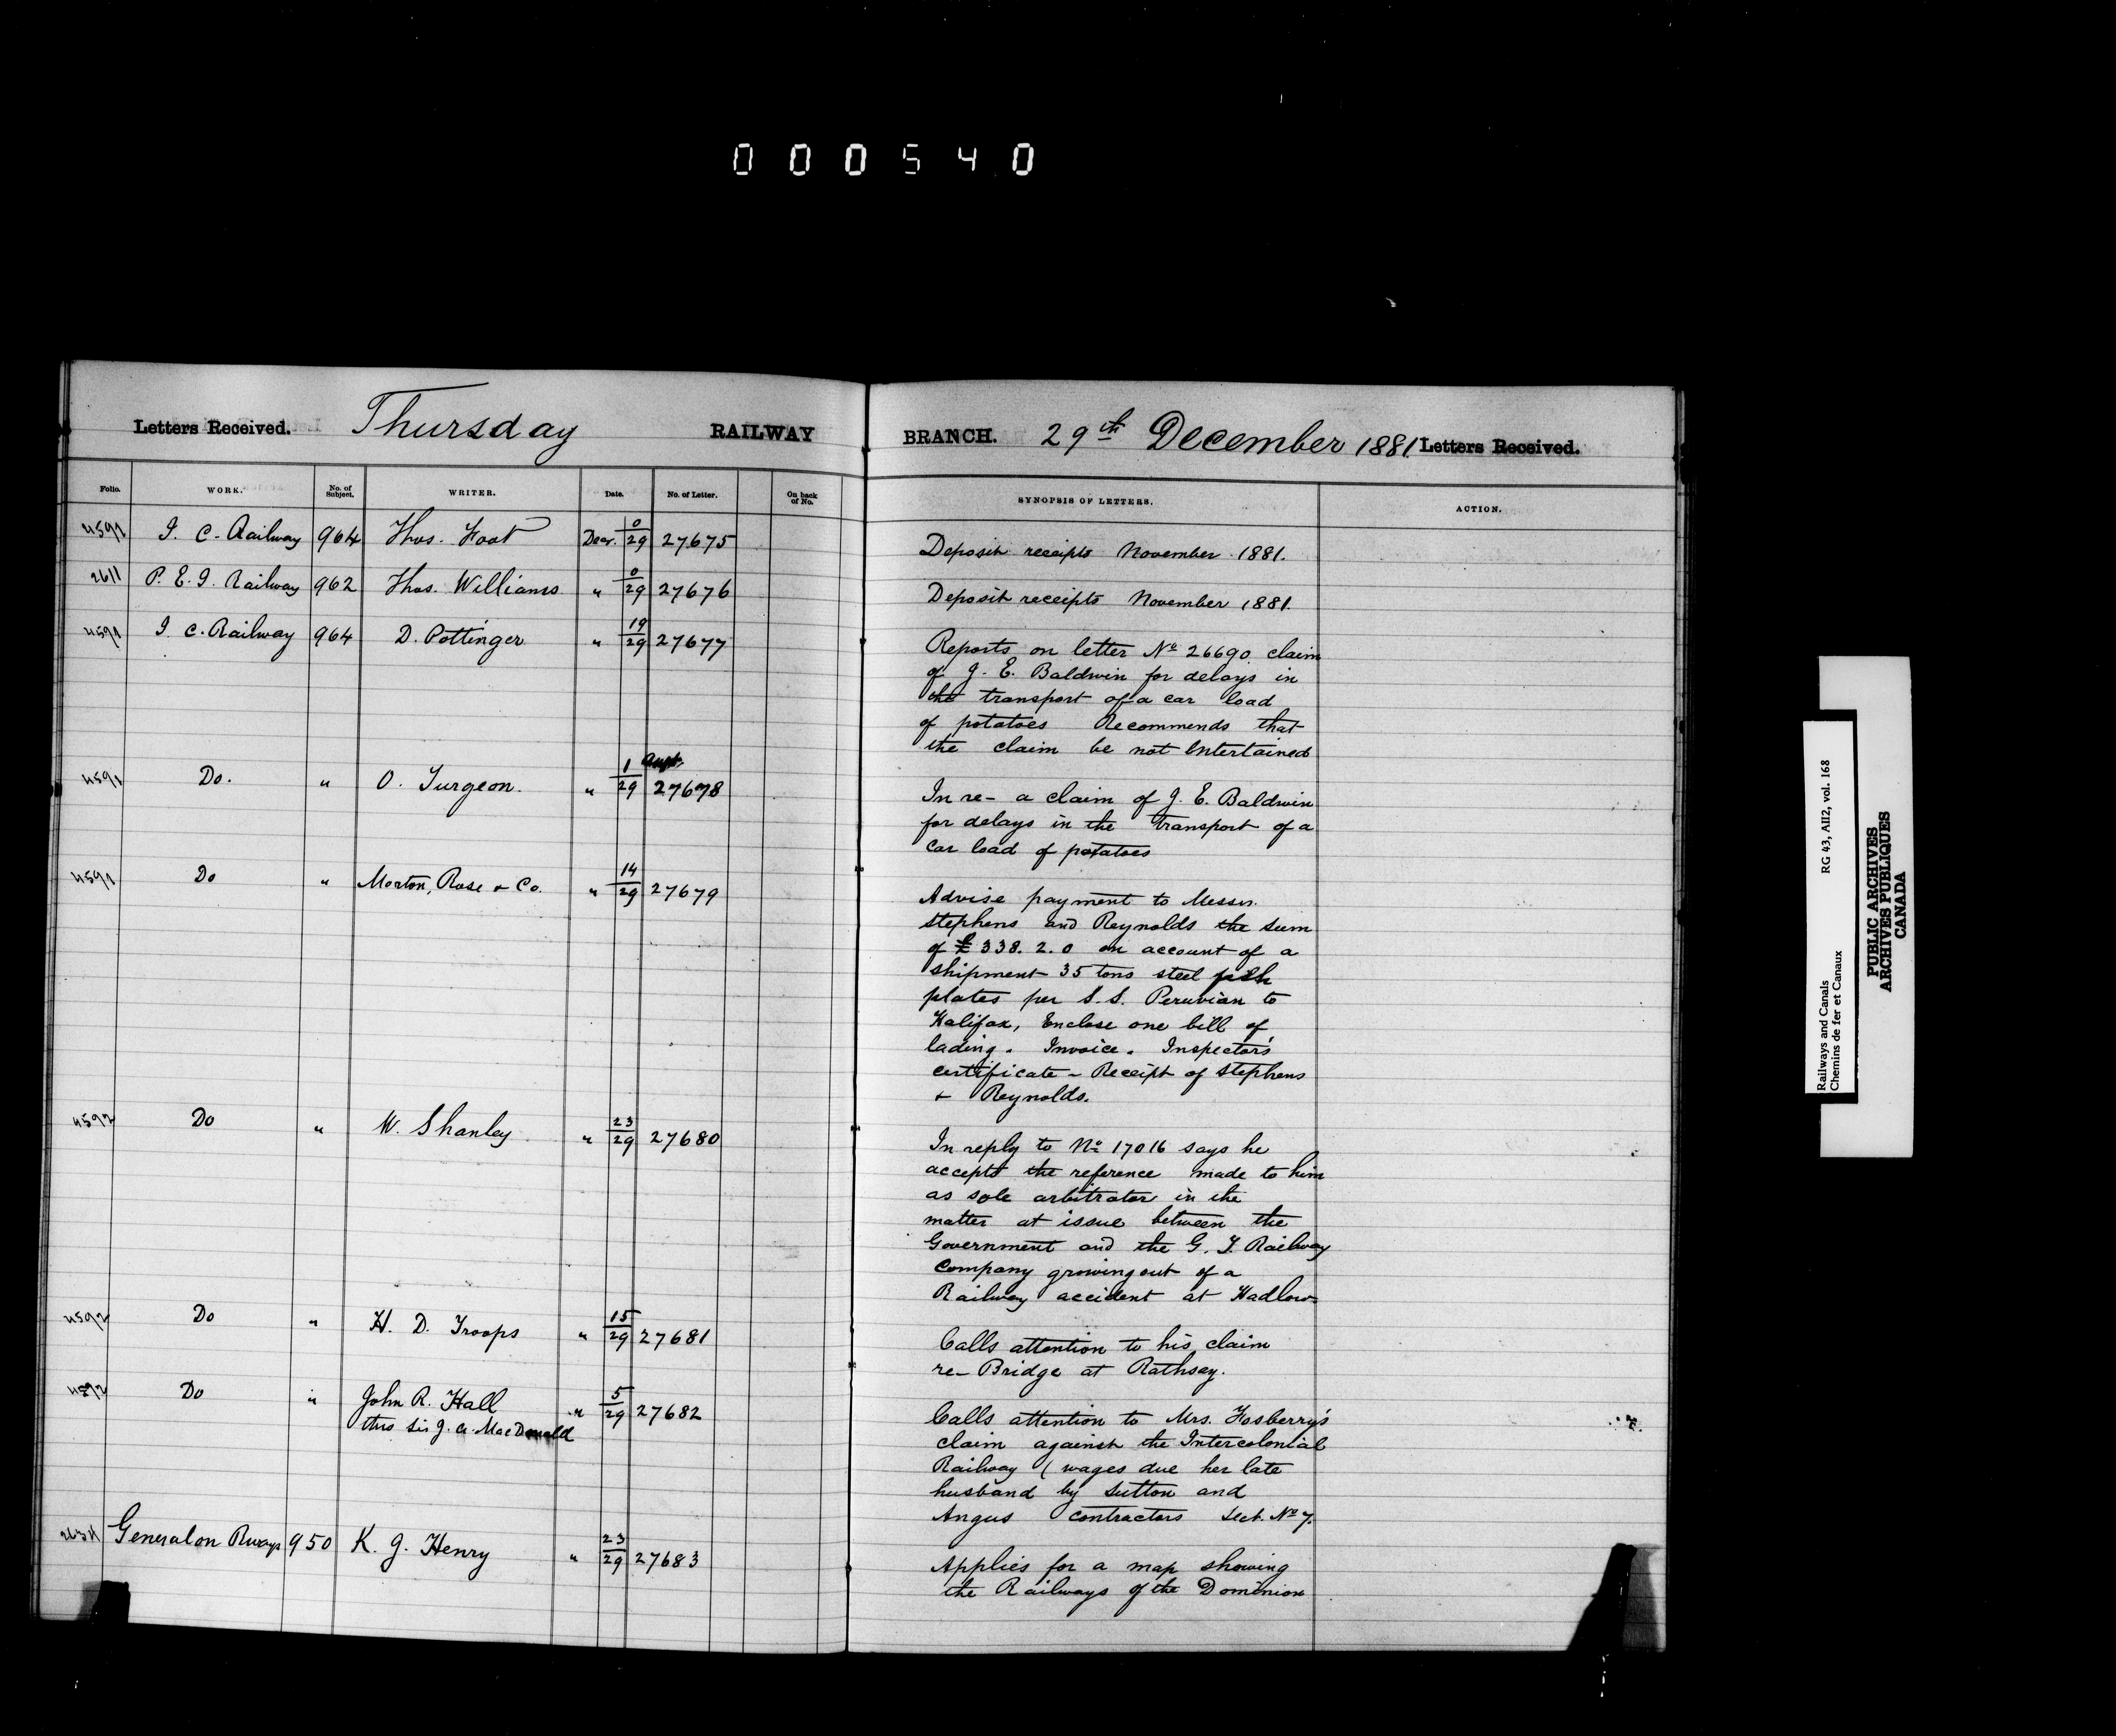 000540
Letters Received. Thursday RAILWAY BRANCH. 29th December 1881 Letters Received.
Folio. WORK. No. of Subject. WRITER. Date. No. of Letter. On back of No. SYNOPSIS OF LETTERS. ACTION.
4591 I. C. Railway 964 Thos. Foot Decr. 0/29 27675 Deposit receipts November 1881.
2611 P. E. I. Railway 962 Thos. Williams " 0/29 27676 Deposit receipts November 1881.
4591 I. C. Railway 964 D. Pottinger " 19/29 27677 Reports on letter No 26690 claim
of J. E. Baldwin for delays in
the transport of a car load
of potatoes Recommends that
the claim be not Entertained
4591 Do. " O. Turgeon. " 1 Augt./29 27678 In re- a claim of J. E. Baldwin
for delays in the transport of a
Car load of potatoes
4591 Do " Morton, Rose & Co. " 14/29 27679 Advise payment to Messrs.
Stephens and Reynolds the sum
of £338. 2. 0 on account of a
shipment 35 tons steel fish
plates per S.S. Peruvian to
Halifax, Enclose one bill of
lading. Invoice. Inspector's
certificate - Receipt of Stephens
& Reynolds.
4592 Do " W. Shanley " 23/29 27680 In reply to No 17016 says he
accepts the reference made to him
as sole arbitrator in the
matter at issue between the
Government and the G. T. Railway
Company growing out of a
Railway accident at Hadlow
4592 Do " H. D. Troops " 15/29 27681 Calls attention to his claim
re- Bridge at Rothsay.
4592 Do " John R. Hall " 5/29 27682 Calls attention to Mrs. Fosberry's
thro Sir J. A. MacDonald
claim against the Intercolonial
Railway ( wages due her late
husband by Sutton and
Angus contractors Sect. No 7.
General on Rways 950 K. J. Henry " 23/29 27683 Applies for a map showing
the Railways of the Dominion
Railways and Canals RG 43, AII2, vol. 168
Chemins de fer et Canaux
PUBLIC ARCHIVES
ARCHIVES PUBLIQUES
CANADA